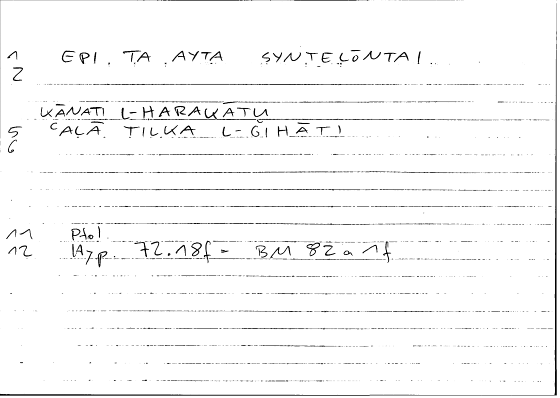 1 EPI. TA AYTA SYNTELŌNTAI.
2
KĀNATI L-HARAKĀTU
5 ʿALĀ TILKA L-ǦIHĀTI
6
11 Ptol.
12 Hyp. 72.18f = BM 82a1f